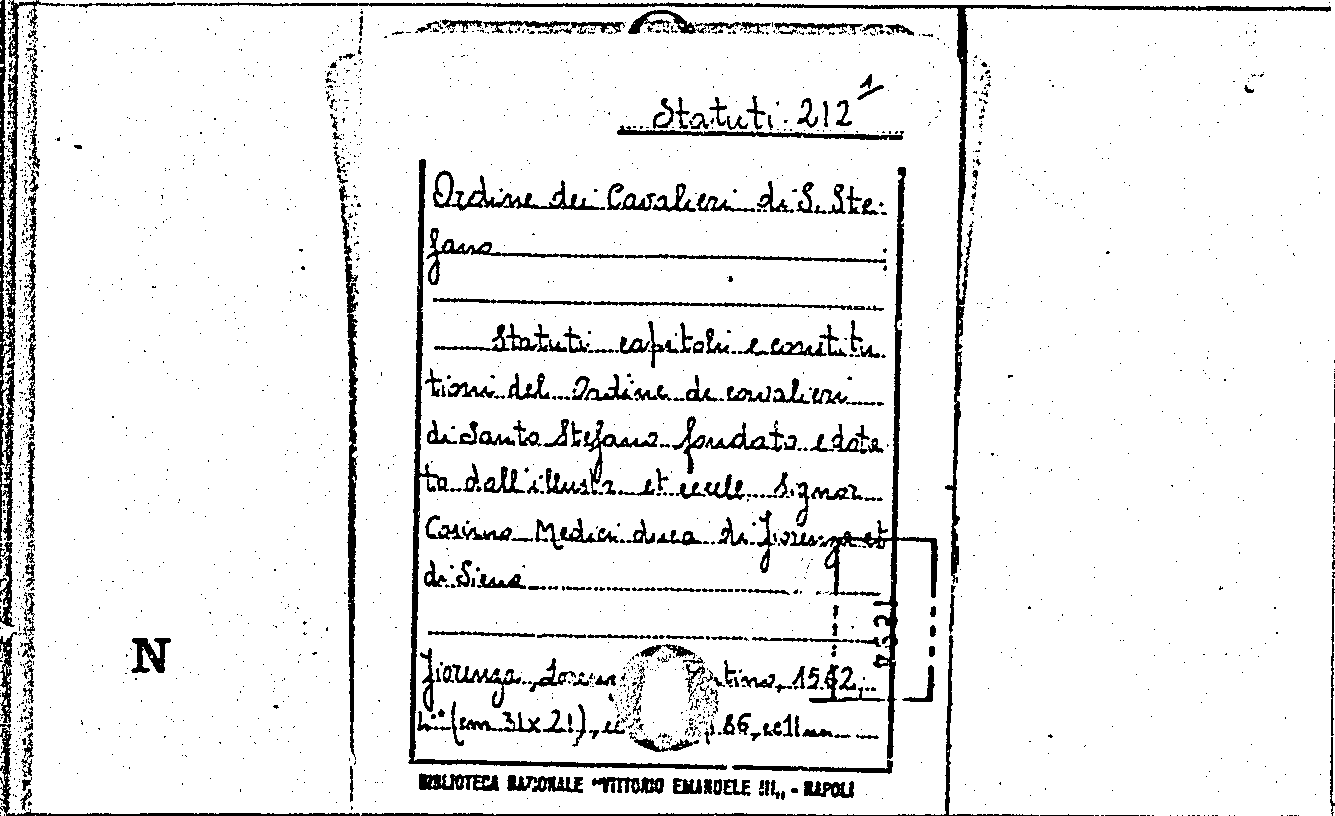 Statuti 212 1
Ordine dei Cavalieri di S. Ste-
fano
Statuti capitoli e constitu
tioni del Ordine de cavalieri
di Santo Stefano fondato e dota
to dall'illustr et eccell Signor
Cosimo Medici duca di Fiorenza et
di Siena
Fiorenza, 1562,
(cm 31x21), 86,
N
BIBLIOTECA NAZIONALE "VITTORIO EMANUELE III" - NAPOLI